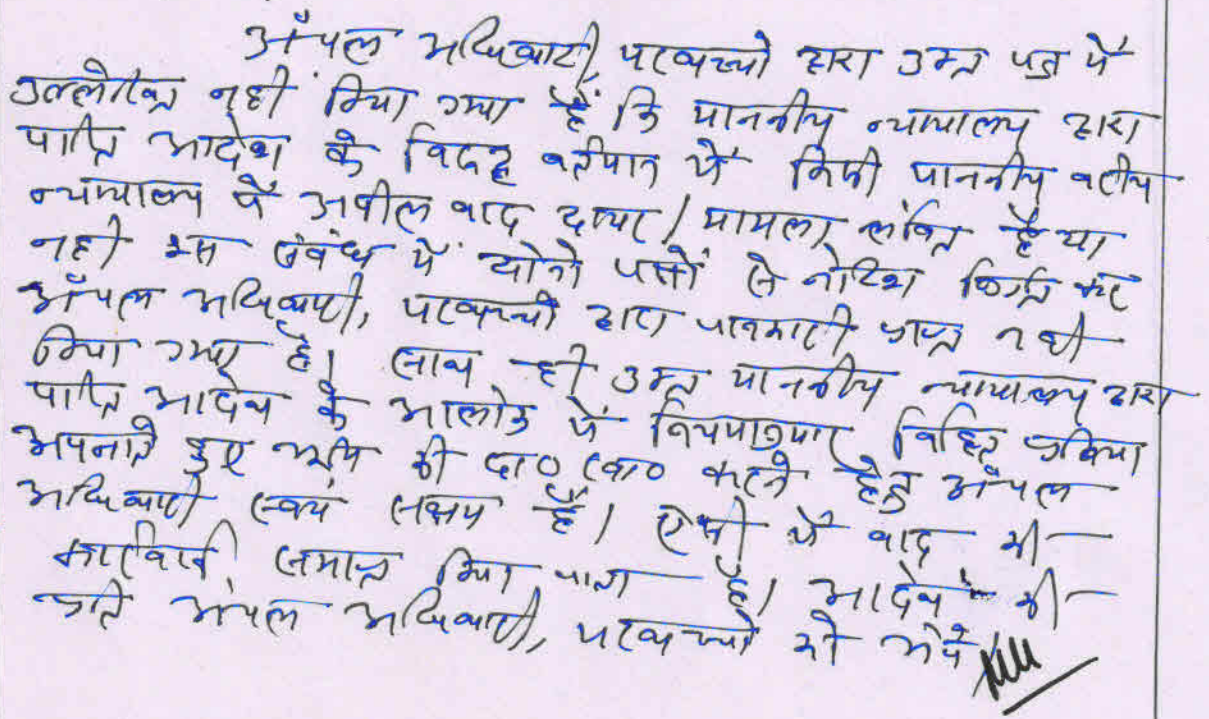 अंचल अधिकारी, परबत्ता द्वारा उक्त पत्र में
उल्लेखित नहीं किया गया है कि माननीय न्यायालय द्वारा
पारित आदेश के विरूद्ध वर्तमान में किसी माननीय वरीय
न्यायालय में अपील वाद दायर / मामला लंबित है या
नहीं इस संबंध में दोनो पक्षों से नोटिश निर्गत कर
अंचल अधिकारी, द्वारा जानकारी प्राप्त नही
किया गया है। साथ ही उक्त माननीय न्यायालय द्वारा
पारित आदेश के आलोक में नियमानुसार विहित प्रक्रिया
अपनाते हुए भूमि की दा० खा० करने हेतु अंचल
अधिकारी स्वयं सक्षम है। ऐसी में वाद की
कार्रवाई समाप्त किया जाता है। आदेश की
प्रति अंचल अधिकारी, को भेजे